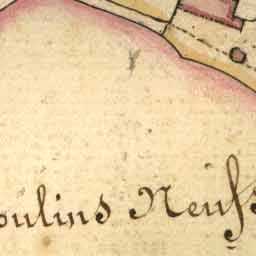 oulins Neufs